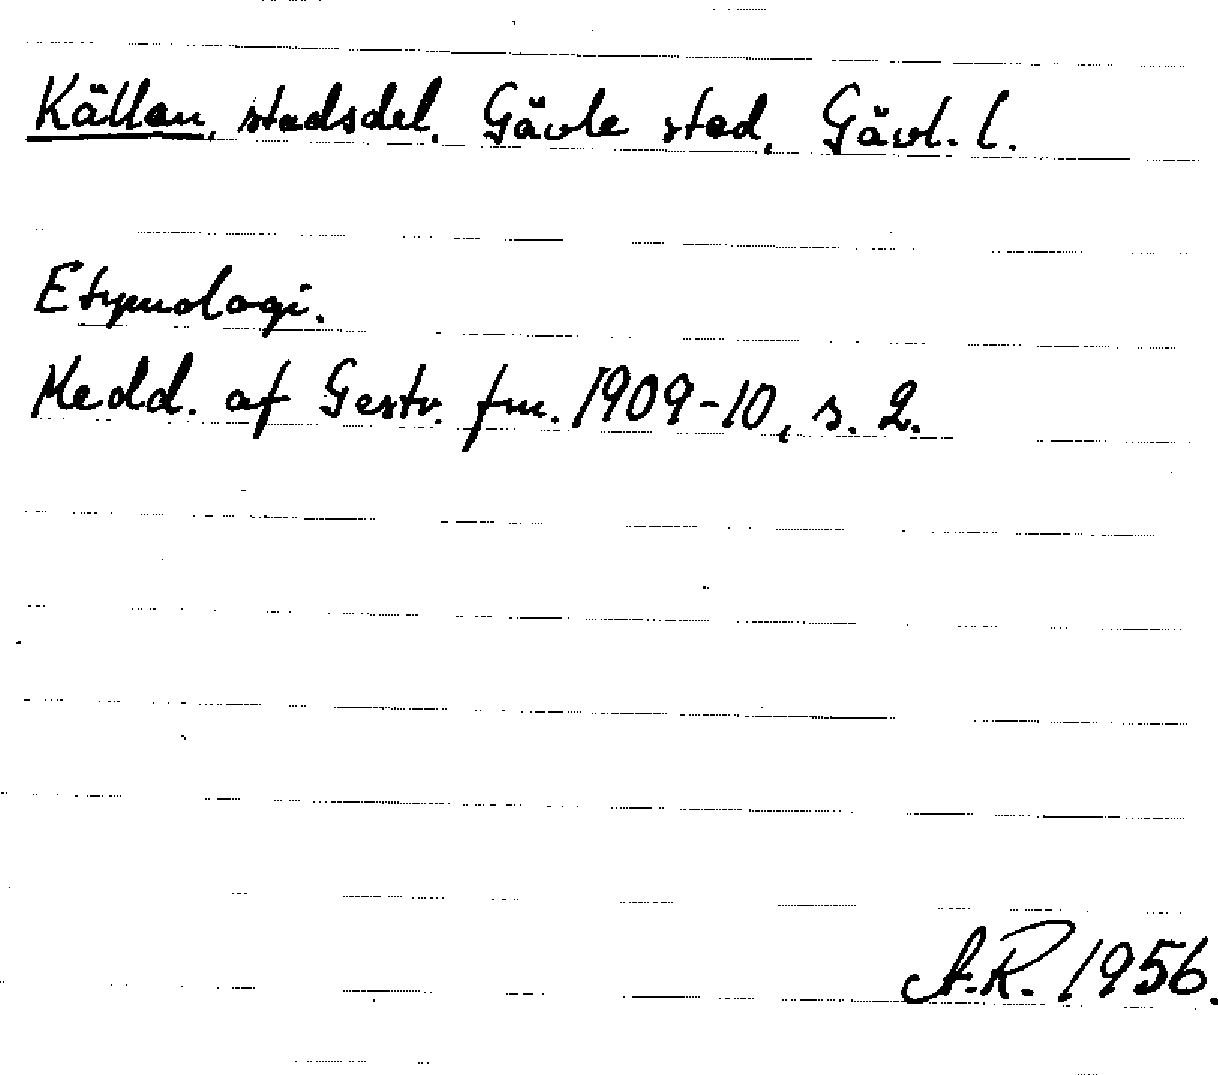 Källan, stadsdel, Gävle stad, Gävl. l.
Etymologi.
Medd. af Gestr. fm. 1909-10, s. 2.
A.R. 1956.